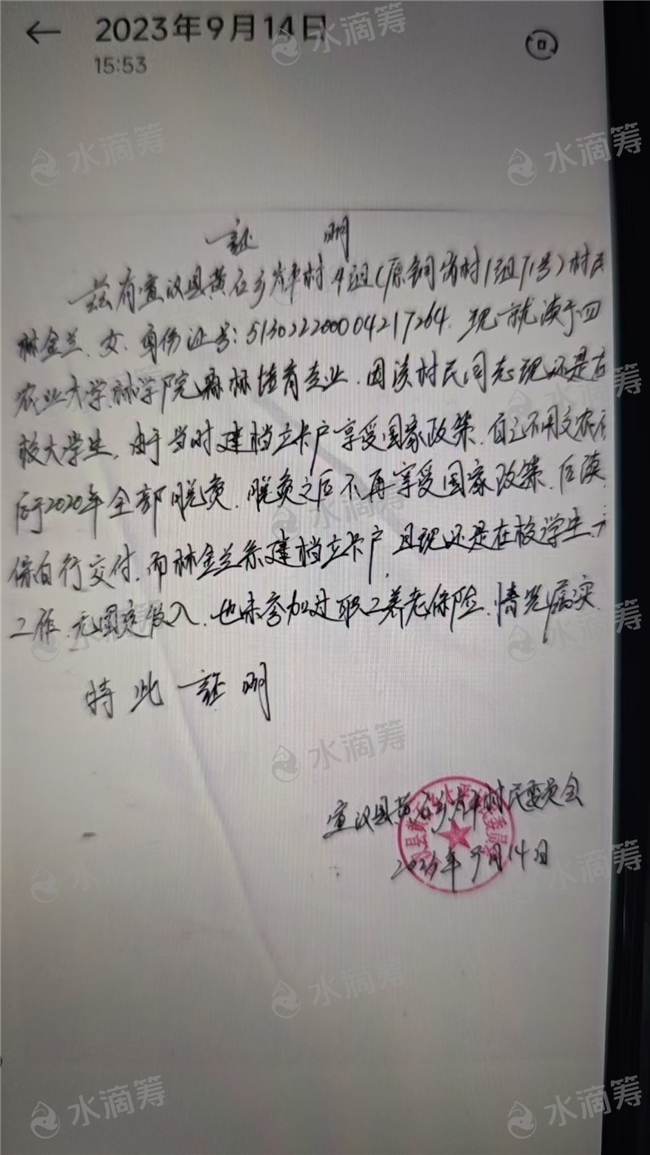 2023年9月14日
15:53
水滴筹
证 明
兹有宣汉县黄石乡岸村4组(原铜岩村1组71号)村民
林金兰、女、身份证号:513022200004217264、现就读于四
农业大学林学院森林培育专业、因该村民同志现还是在
校大学生、由于当时建档立卡户享受国家政策、自己不用交农
后于2020年全部脱贫、脱贫之后不再享受国家政策、后续
保自行交付、而林金兰系建档立卡户、且现还是在校学生、
工作、无固定收入、也未参加过职工养老保险、情况属实
特此证明
宣汉县黄石乡 村民委员会
2023年9月14日